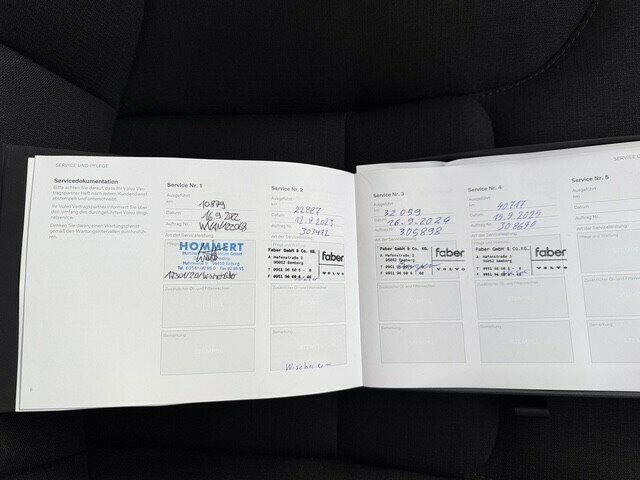 SERVICE UND PFLEGE
Servicedokumentation
Bitte achten Sie darauf, dass Ihr Volvo Ver-
tragspartner Heft nach jedem Kundendienst
abstempelt und unterschreibt.
Ihr Volvo Vertragspartner informiert Sie über
den Umfang des durchgeführten Volvo Origi-
nalservice.
Denken Sie daran, einen Wartungsdienst
gemäß den Wartungsintervallen durchzufüh-
ren.
6
Service Nr. 1
Ausgeführt
km 10879
Datum 16.9.2022
Auftrag Nr.
Art der Serviceleistung
HOMMERT
Coburg
Zusätzlicher Öl- und Filterwechsel
Bemerkung
STEMPEL
Service Nr. 2
Ausgeführt
km 22887
Datum 12.9.2023
Auftrag Nr. 303472
Art der Serviceleistung
Faber GmbH & Co. KG.
A Hafenstraße 3
96052 Bamberg
faber
VOLVO
Zusätzlicher Öl- und Filterwechsel
Bemerkung
STEMPEL
Service Nr. 3
Ausgeführt
km 32059
Datum 16.9.2024
Auftrag Nr. 305898
Art der Serviceleistung
Faber GmbH & Co. KG.
A Hafenstraße 3
96052 Bamberg
faber
VOLVO
Zusätzlicher Öl- und Filterwechsel
Bemerkung
STEMPEL
Service Nr. 4
Ausgeführt
km 40717
Datum 15.9.2025
Auftrag Nr. 308690
Art der Serviceleistung
Faber GmbH & Co. KG.
A Hafenstraße 3
96052 Bamberg
faber
VOLVO
Zusätzlicher Öl- und Filterwechsel
Bemerkung
STEMPEL
SERVICE U
Service Nr. 5
Ausgeführt
km
Datum
Auftrag Nr.
Art der Serviceleistung
Bemerkung